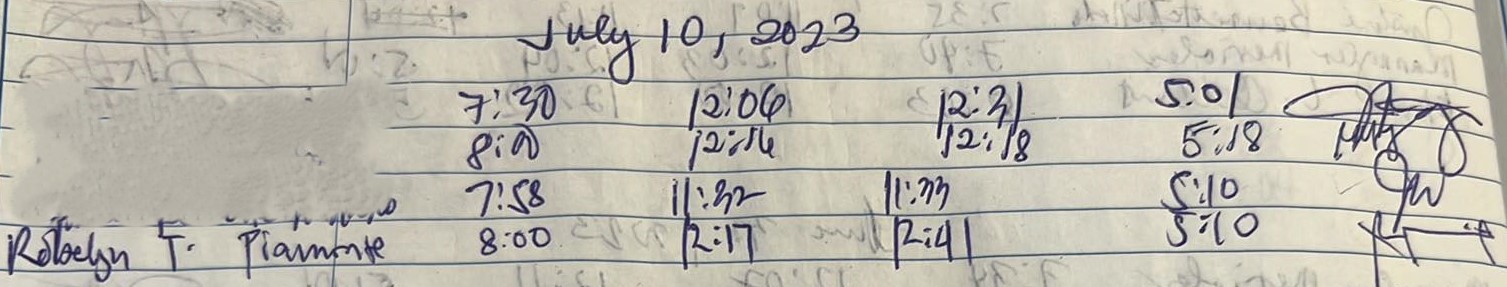 July 10, 2023
7:30 12:06 12:31 5:01
8:00 12:16 12:18 5:18
7:58 11:32 11:33 5:10
Robelyn T. Piamonte 8:00 12:17 12:41 5:10